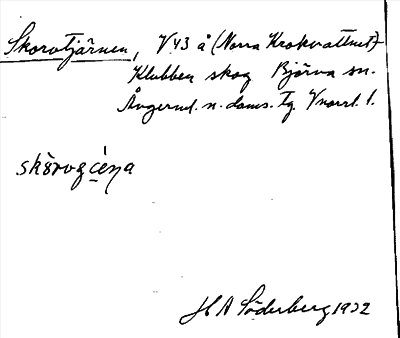 Skorvtjärnen, V 43 å (Norra Krokvattnet)
Klubben skog Björna sn.
Ångerml. n. doms. tg. Vnorrl. l.
skörvgc̀éṇa
H A Söderberg 1932